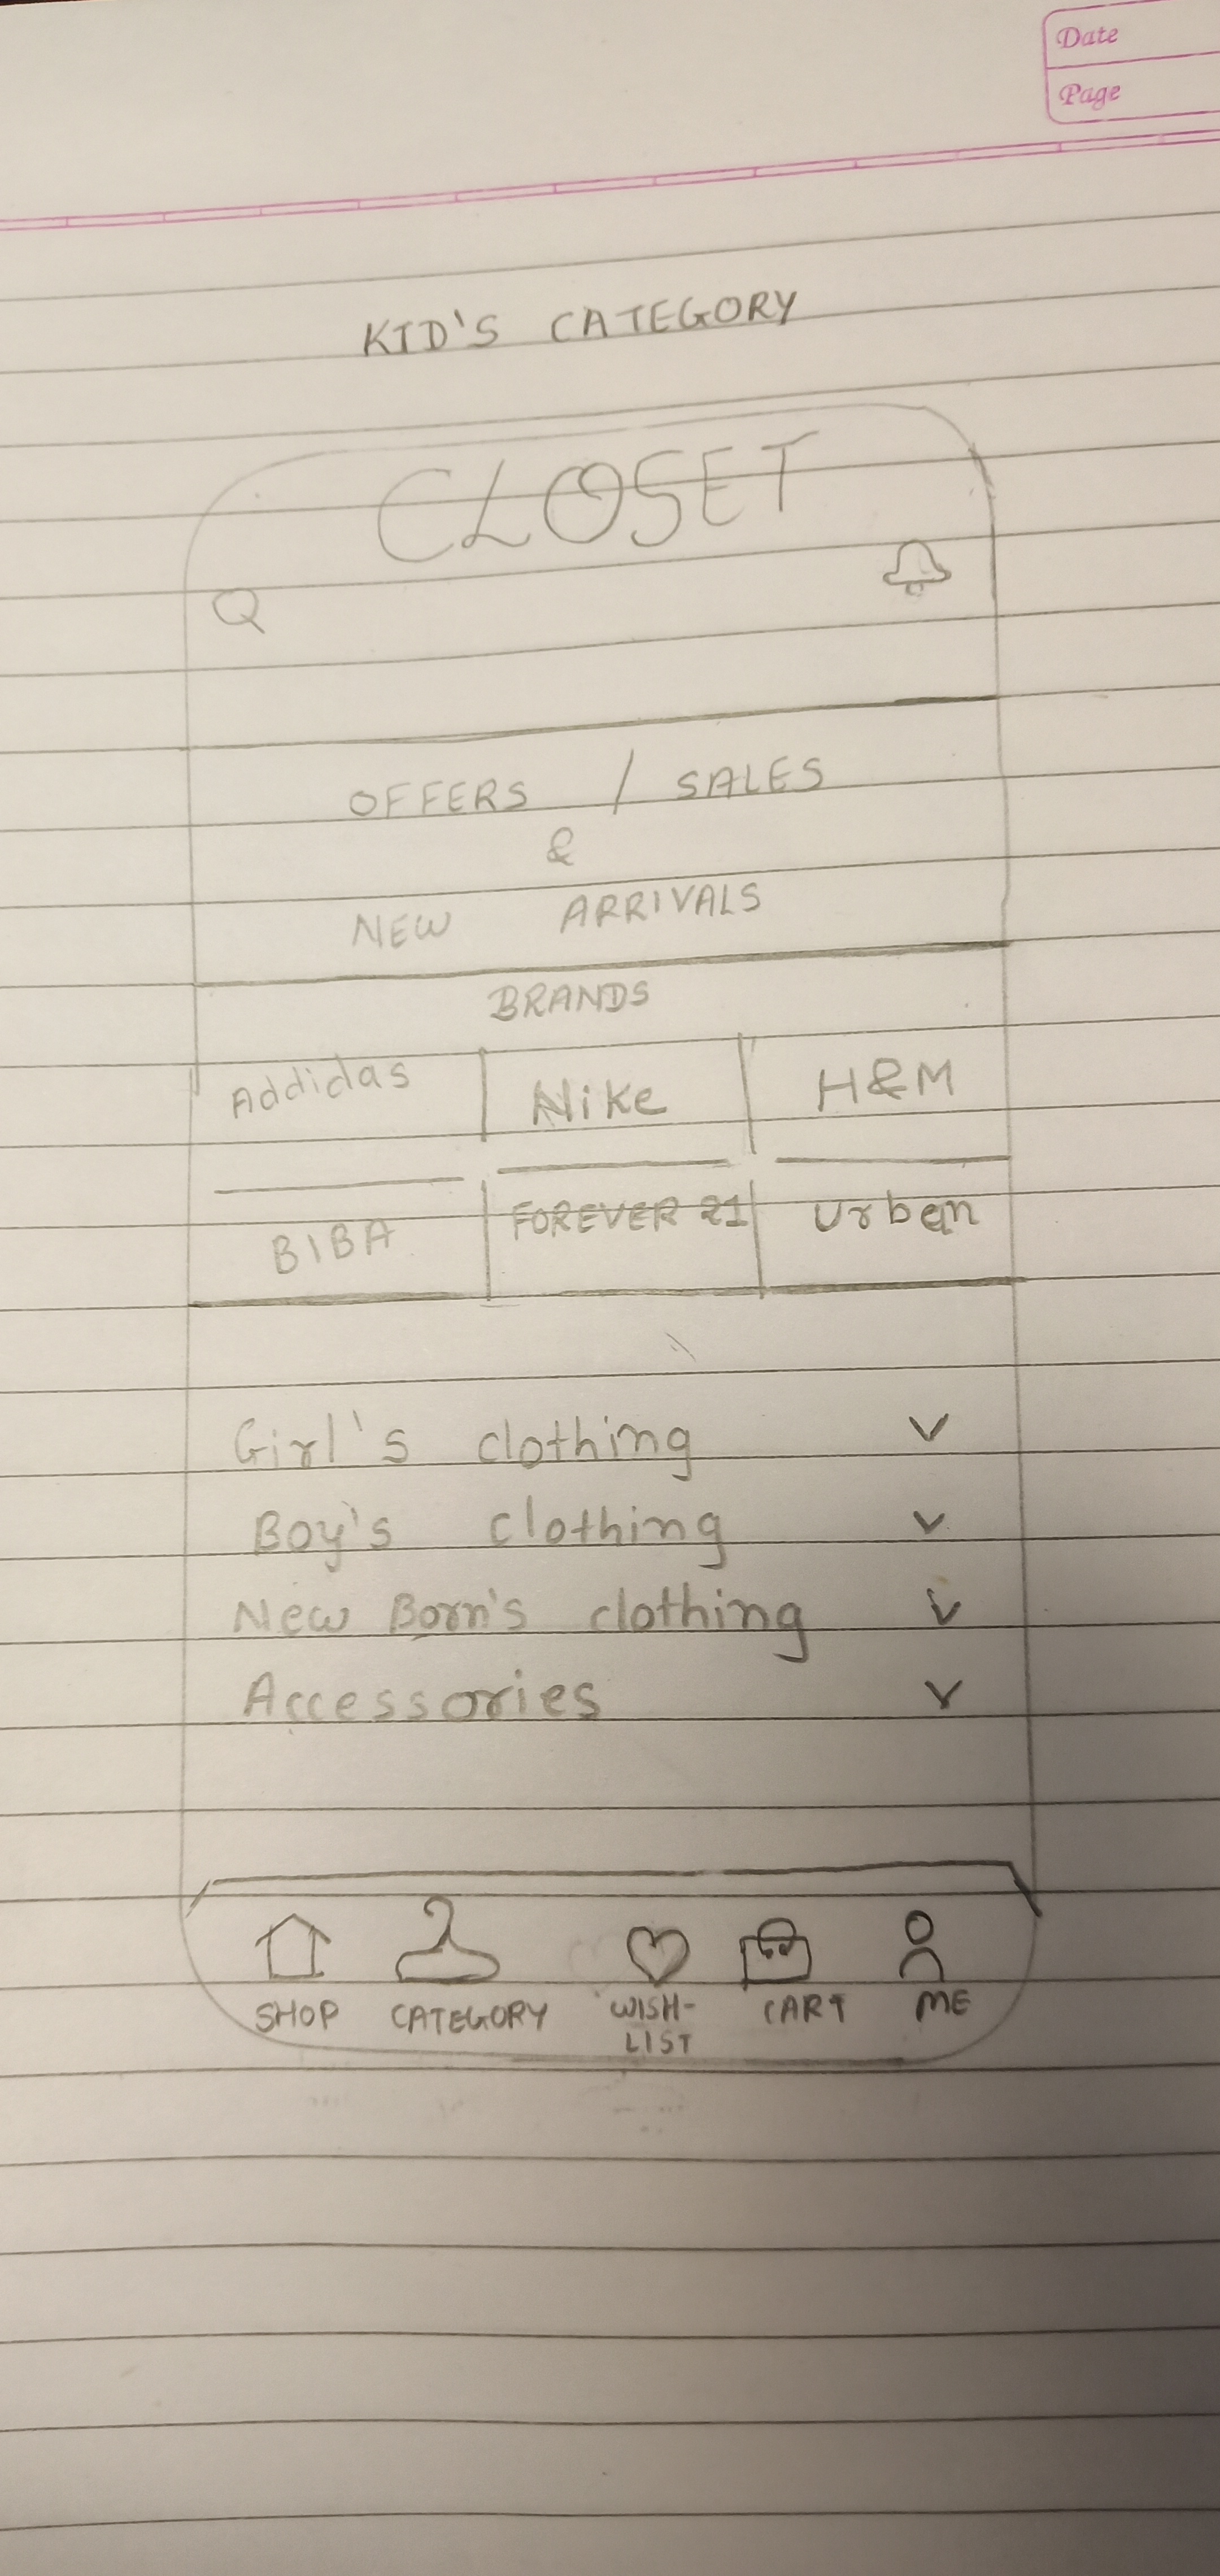 Date
Page
KID'S CATEGORY
CLOSET
OFFERS / SALES
&
NEW ARRIVALS
BRANDS
Addidas Nike H&M
BIBA FOREVER 21 Urban
Girl's clothing
Boy's clothing
New Born's clothing
Accessories
SHOP CATEGORY WISH- CART ME
LIST